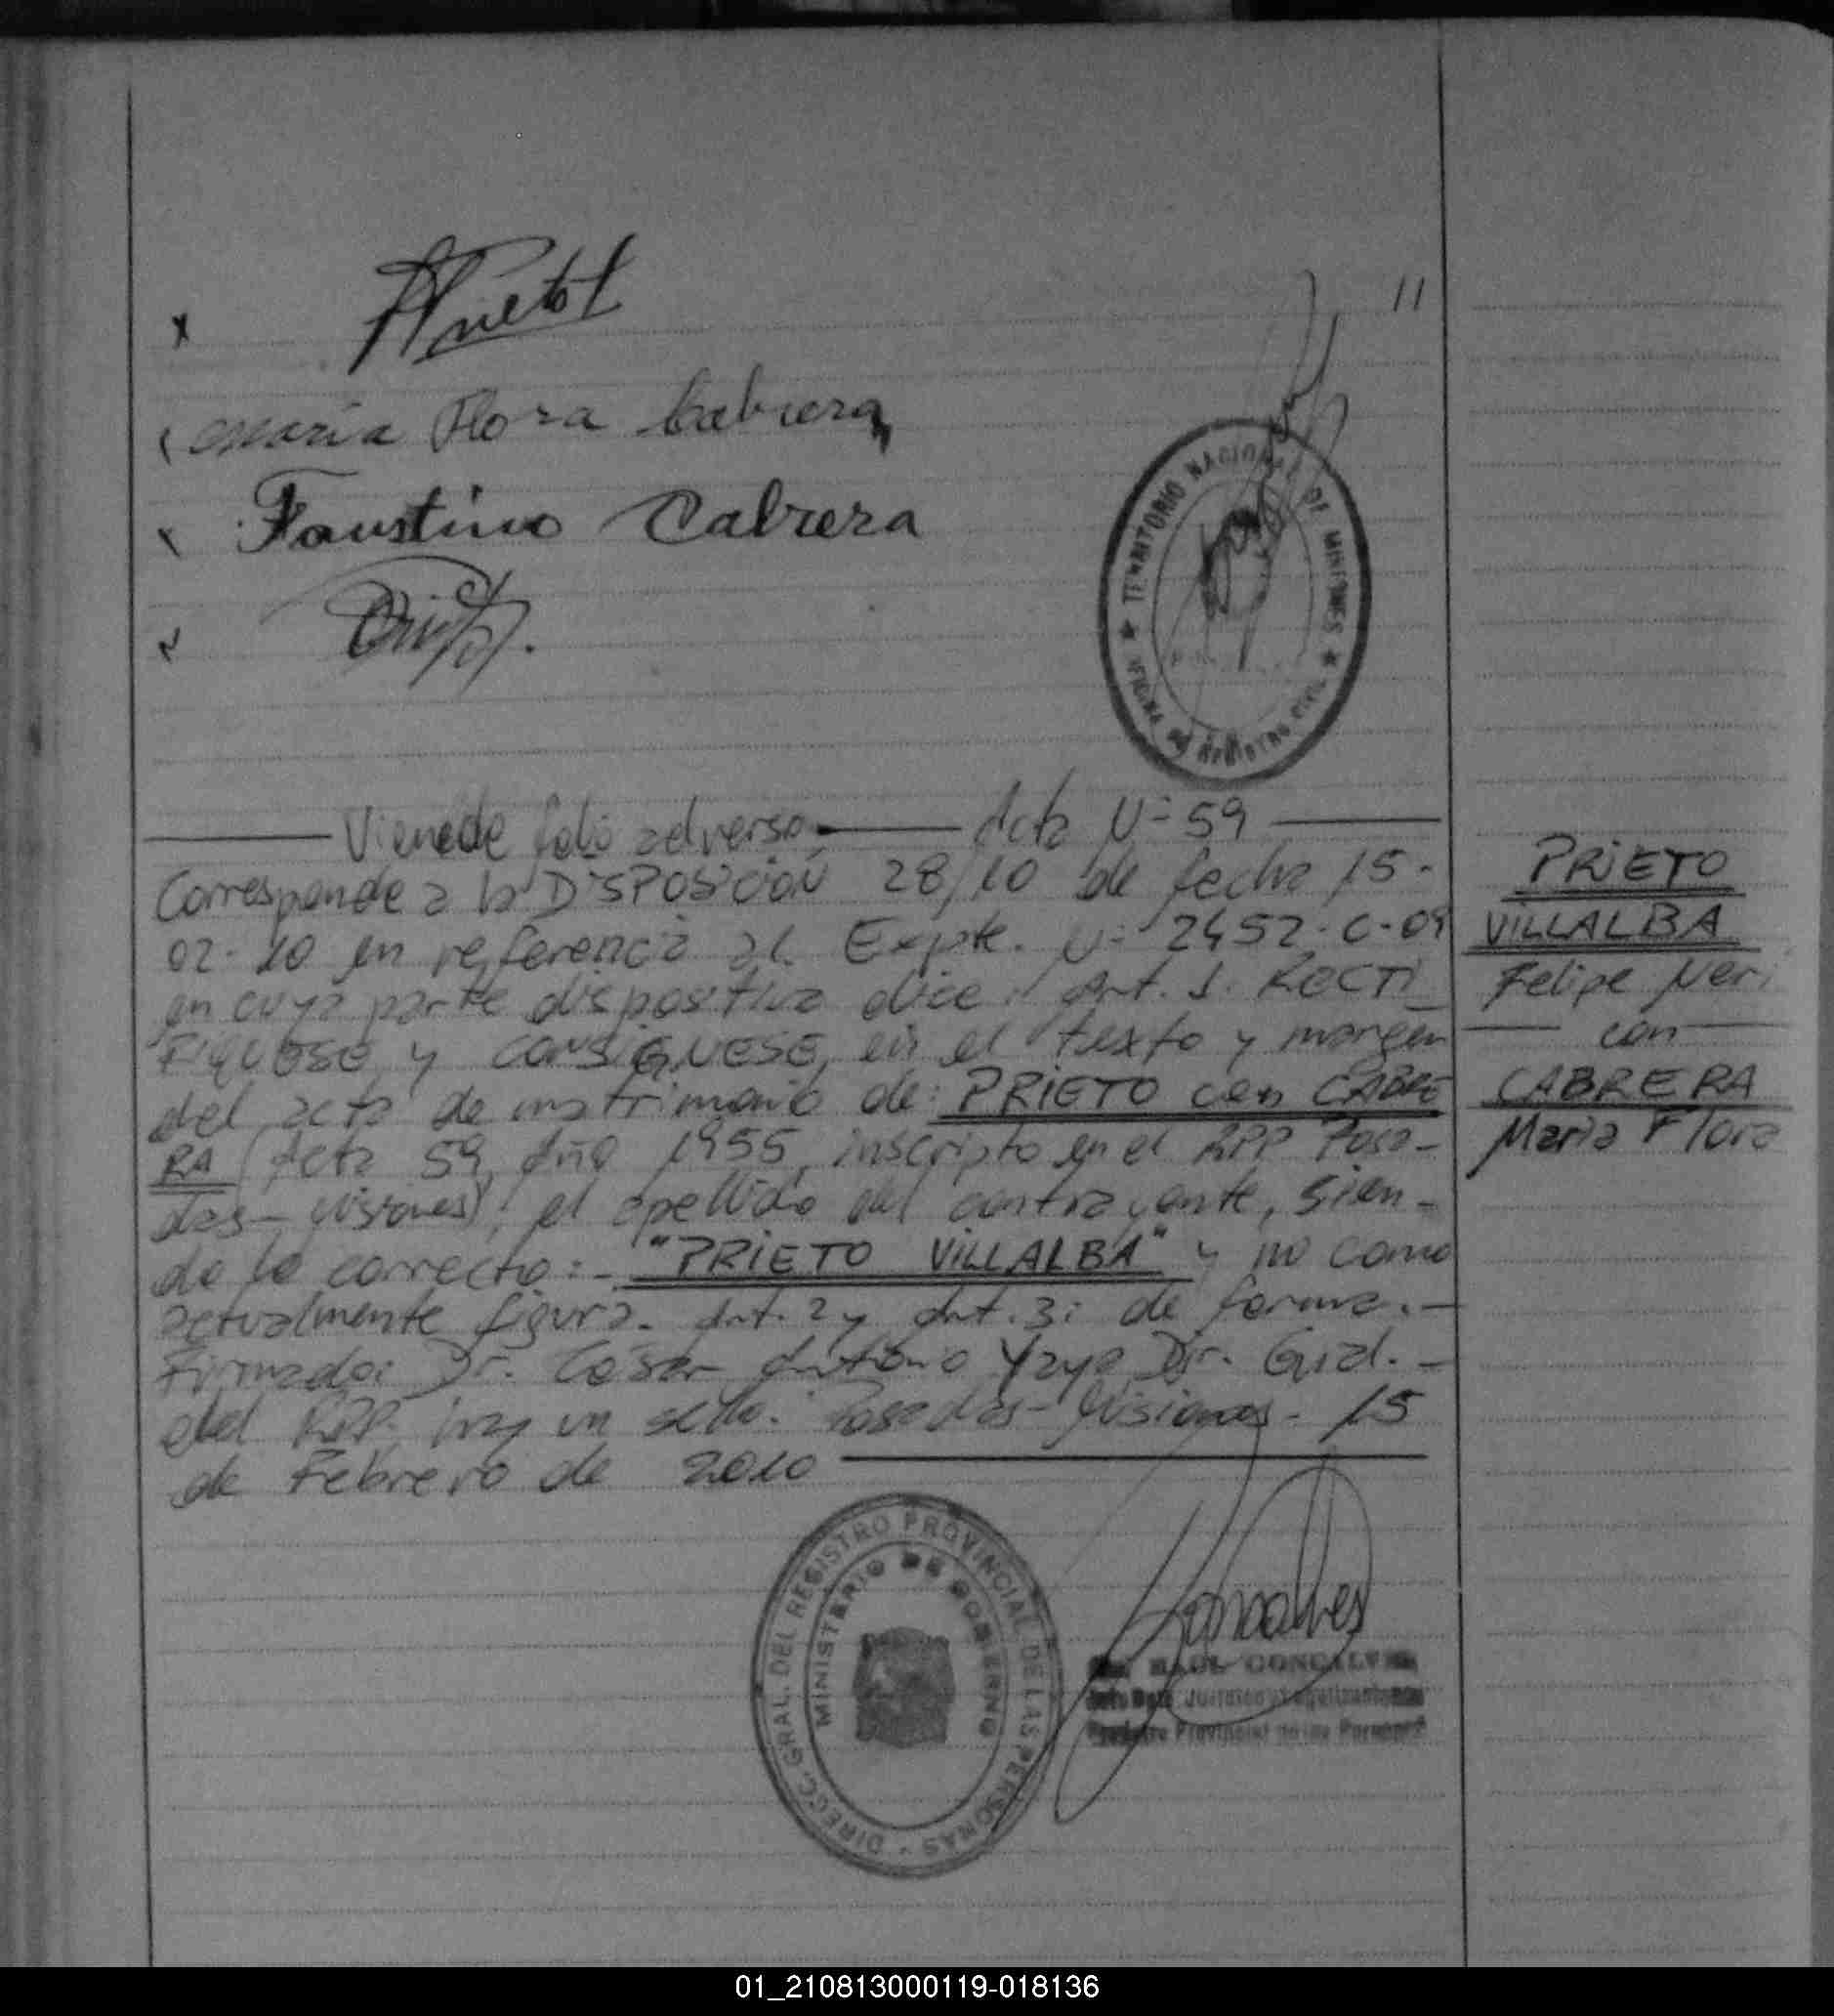 11
x
Maria Flora Cabrera
Faustino Cabrera
TERRITORIO NACIONAL DE MISIONES
OFICINA DE REGISTRO CIVIL
Viene de folio adverso, Acta Nº 59
Corresponde a la DISPOSICION 28/10 de fecha 15-
02-10 en referencia al Expte. Nº 2452-C-09
en cuya parte dispositiva dice: Art. 1. RECTI
FIQUESE y CONSIGNESE, en el texto y margen
del acta de matrimonio de: PRIETO con CABRE
RA (Acta 59, Año 1955, inscripto en el RPP Posa-
das-Misiones), el apellido del contrayente, sien-
do lo correcto: "PRIETO VILLALBA" y no como
actualmente figura. Art. 2 y Art. 3: de forma.-
Firmado: Dr. César Antonio Dir. Gral.-
del RPP, hay un sello. Posadas-Misiones- 15
de Febrero de 2010
PRIETO
VILLALBA
Felipe Neri
con
CABRERA
Maria Flora
DIRECC. GRAL. DEL REGISTRO PROVINCIAL DE LAS PERSONAS
MINISTERIO DE GOBIERNO
Goncalves
RAUL GONCALVES
Registro Provincial de las Personas
01_210813000119-018136